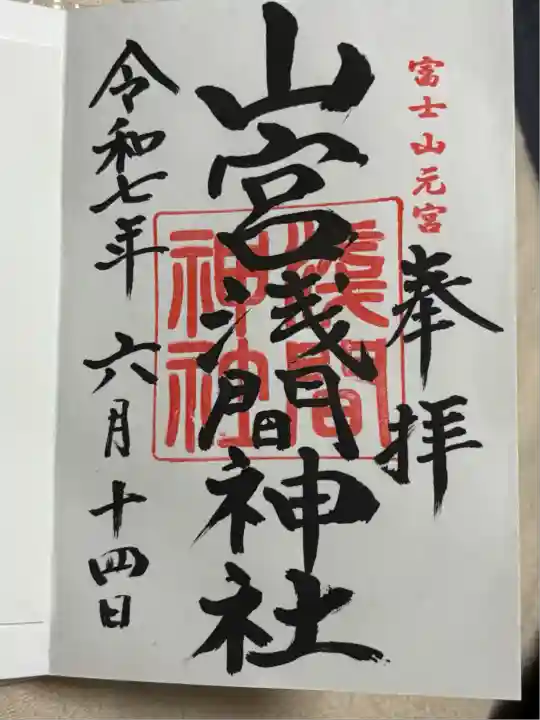 富士山元宮
奉拝
山宮浅間神社
浅間
神社
令和七年 六月十四日